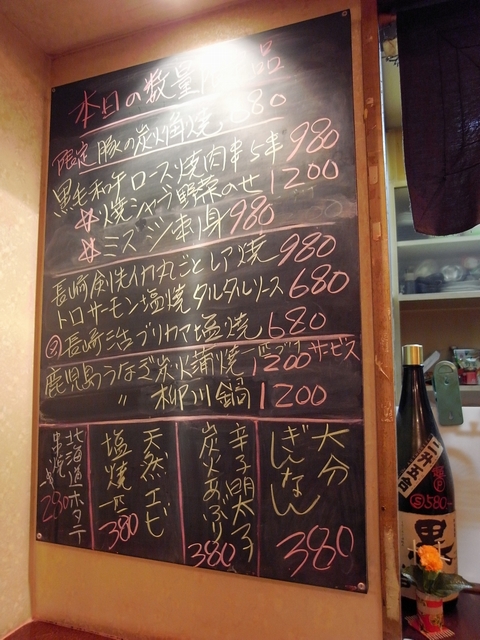 本日の数量限品
限定 豚の炭火角焼 680
黒毛和牛ロース焼肉串5本 980
焼シャブ野菜のせ 1200
ミスジ刺身 980
長崎剣先イカ丸ごとレア焼 980
トロサーモン塩焼タルタルソース 680
長崎 ブリカマ塩焼 680
鹿児島うなぎ炭火蒲焼 1200 サービス
〃 柳川鍋 1200
大分
ぎんなん
380
辛子明太子
炭火あぶり
380
天然エビ
塩焼一匹
380
北海道ホタテ
串焼 280
二升五合
580
黒